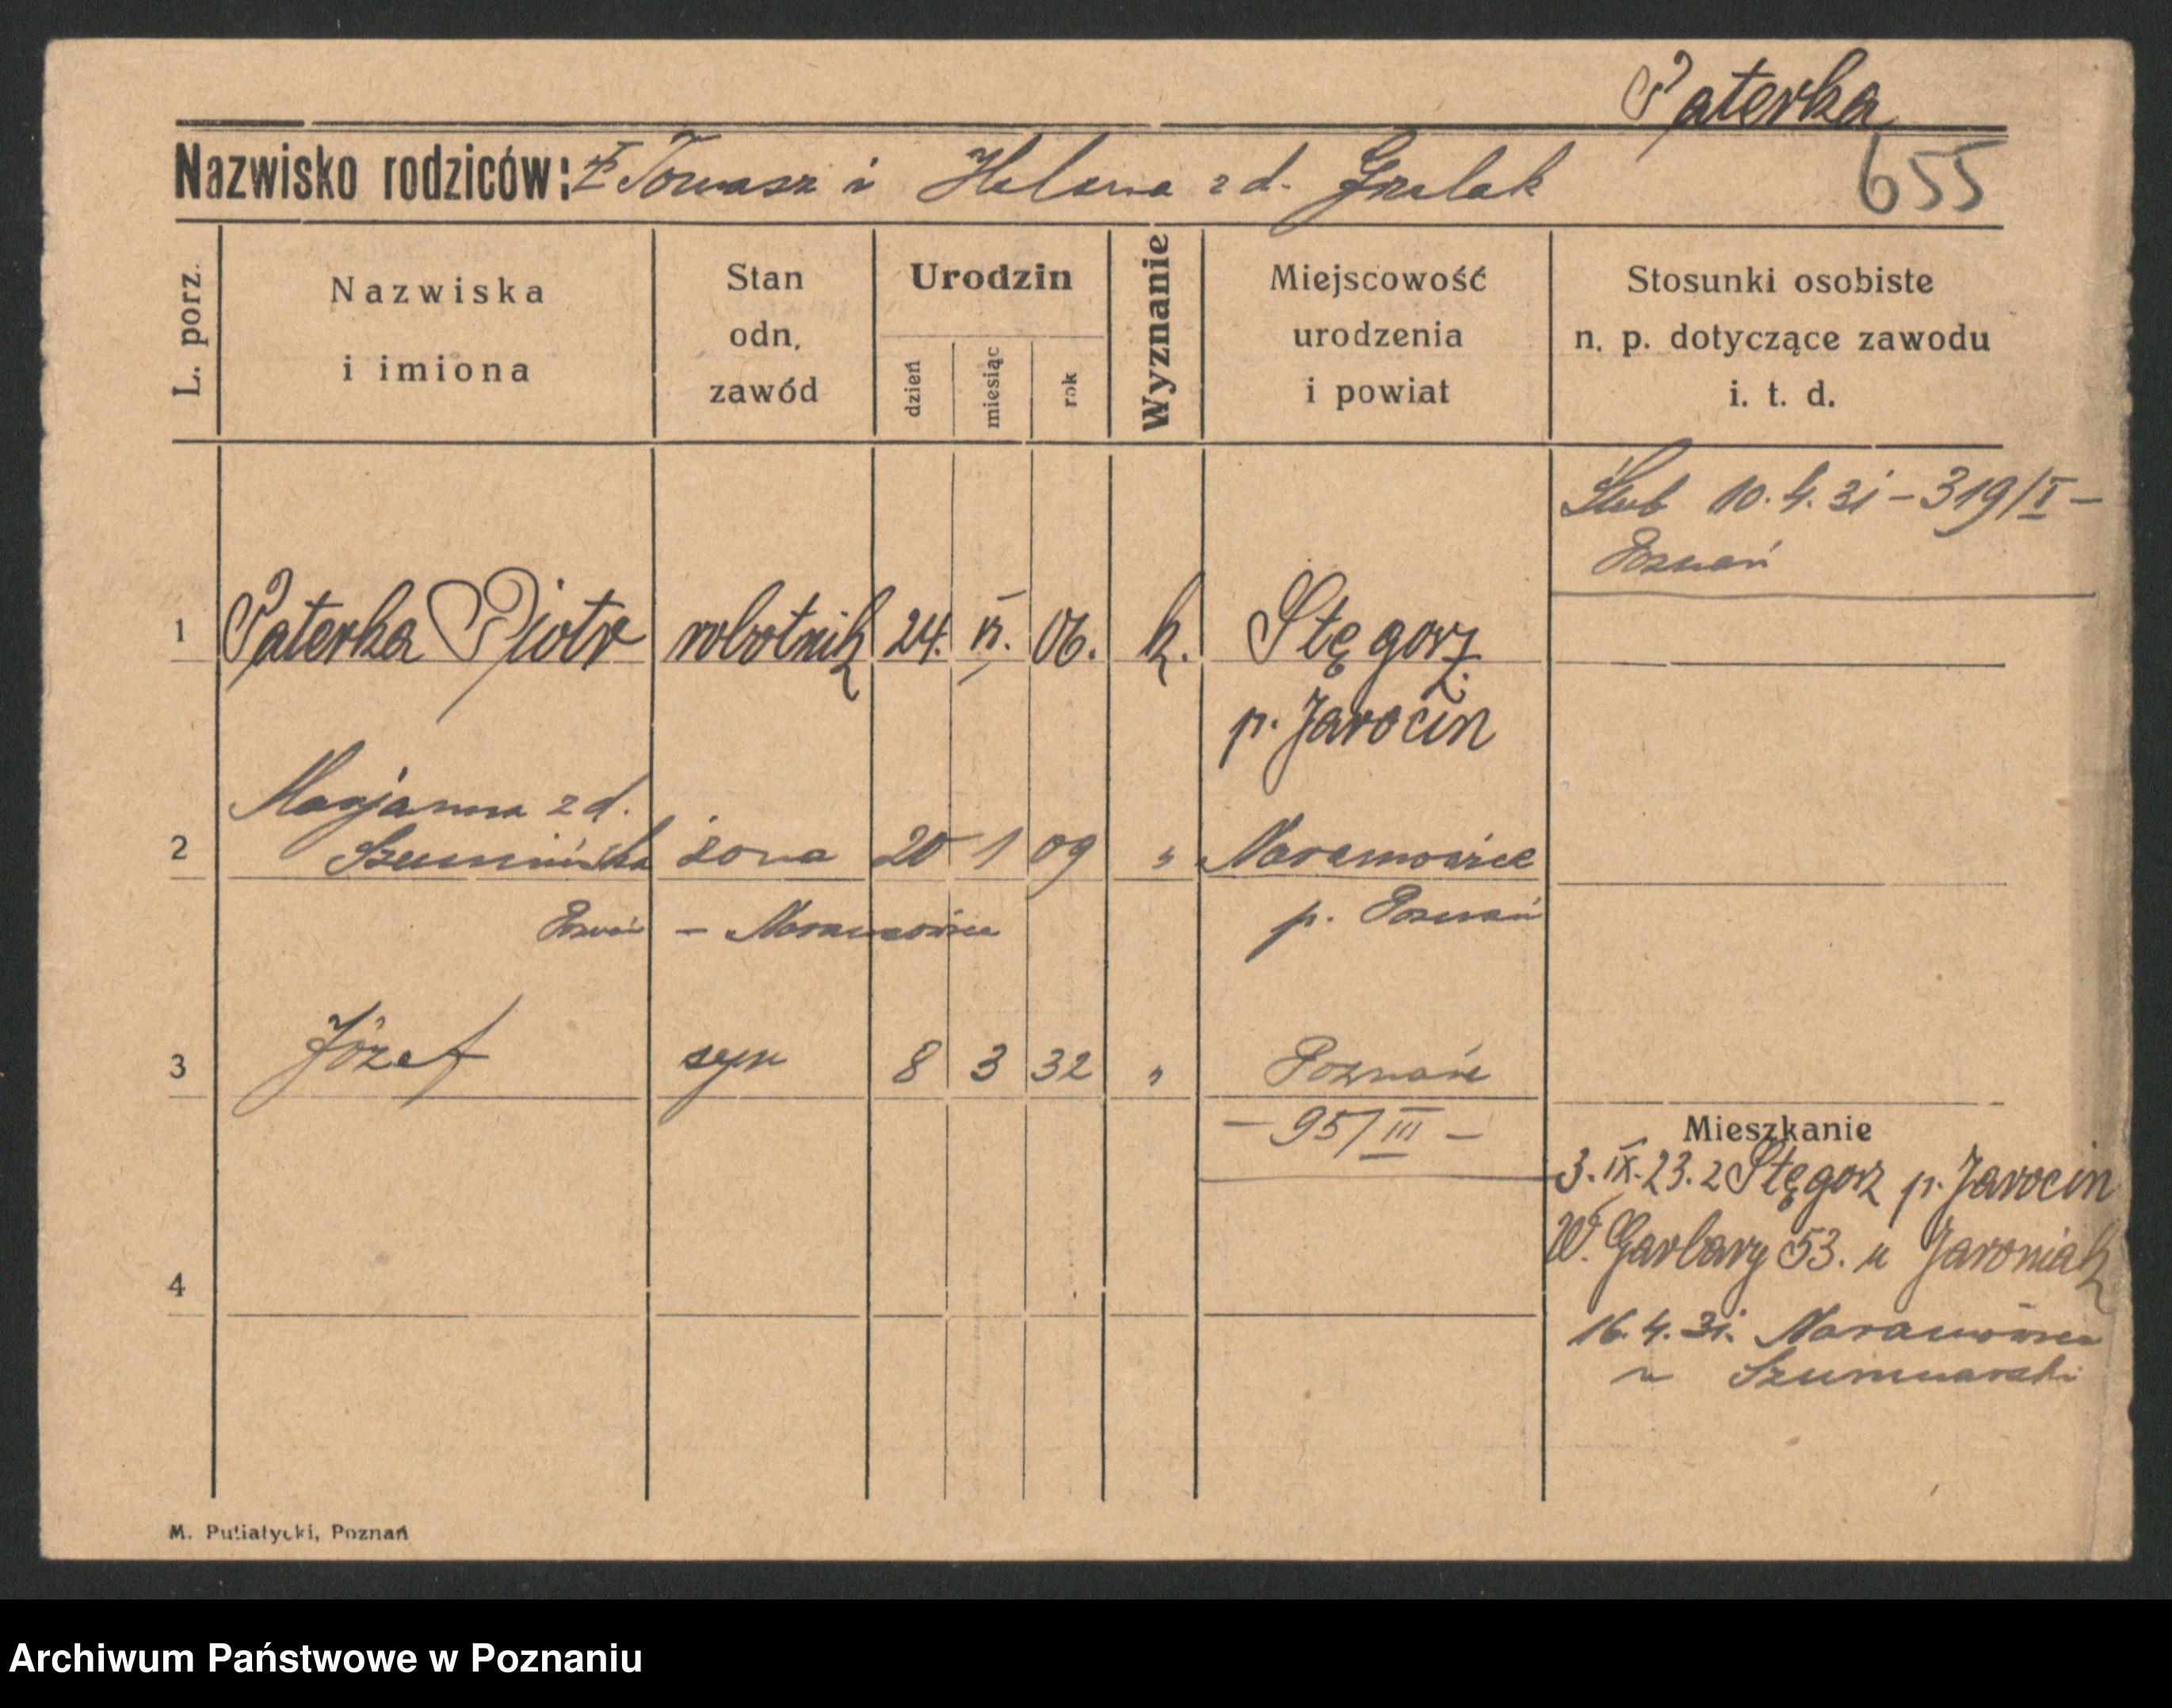 Paterka
Nazwisko rodziców: Tomasz i Helena zd. Grzelak
655
L. porz.
Nazwiska
i imiona
Stan
odn.
zawód
Urodzin
dzień
miesiąc
rok
Wyznanie
Miejscowość
urodzenia
i powiat
Stosunki osobiste
n. p. dotyczące zawodu
i. t. d.
Ślub 10.4.31 – 319/I –
Poznań
1 Paterka Piotr robotnik 24. VI. 06. k. Stęgorz.
p. Jarocin
Marjanna zd.
2 Szumińska żona 20 1 09 " Naramowice
Poznań – Naramowice p. Poznań
3 Józef syn 8 3 32 " Poznań
– 95/III –
Mieszkanie
3. IX. 23. z Stęgorz p. Jarocin
W. Garbary 53. u Jaroniak
4
16.4.31. Naramowice
u
M. Putiatycki, Poznań
Archiwum Państwowe w Poznaniu